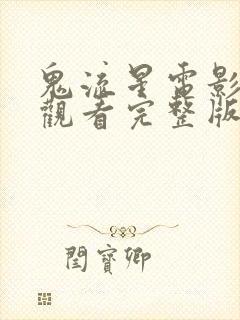 鬼流星電影
觀看完整版
閆寶卿